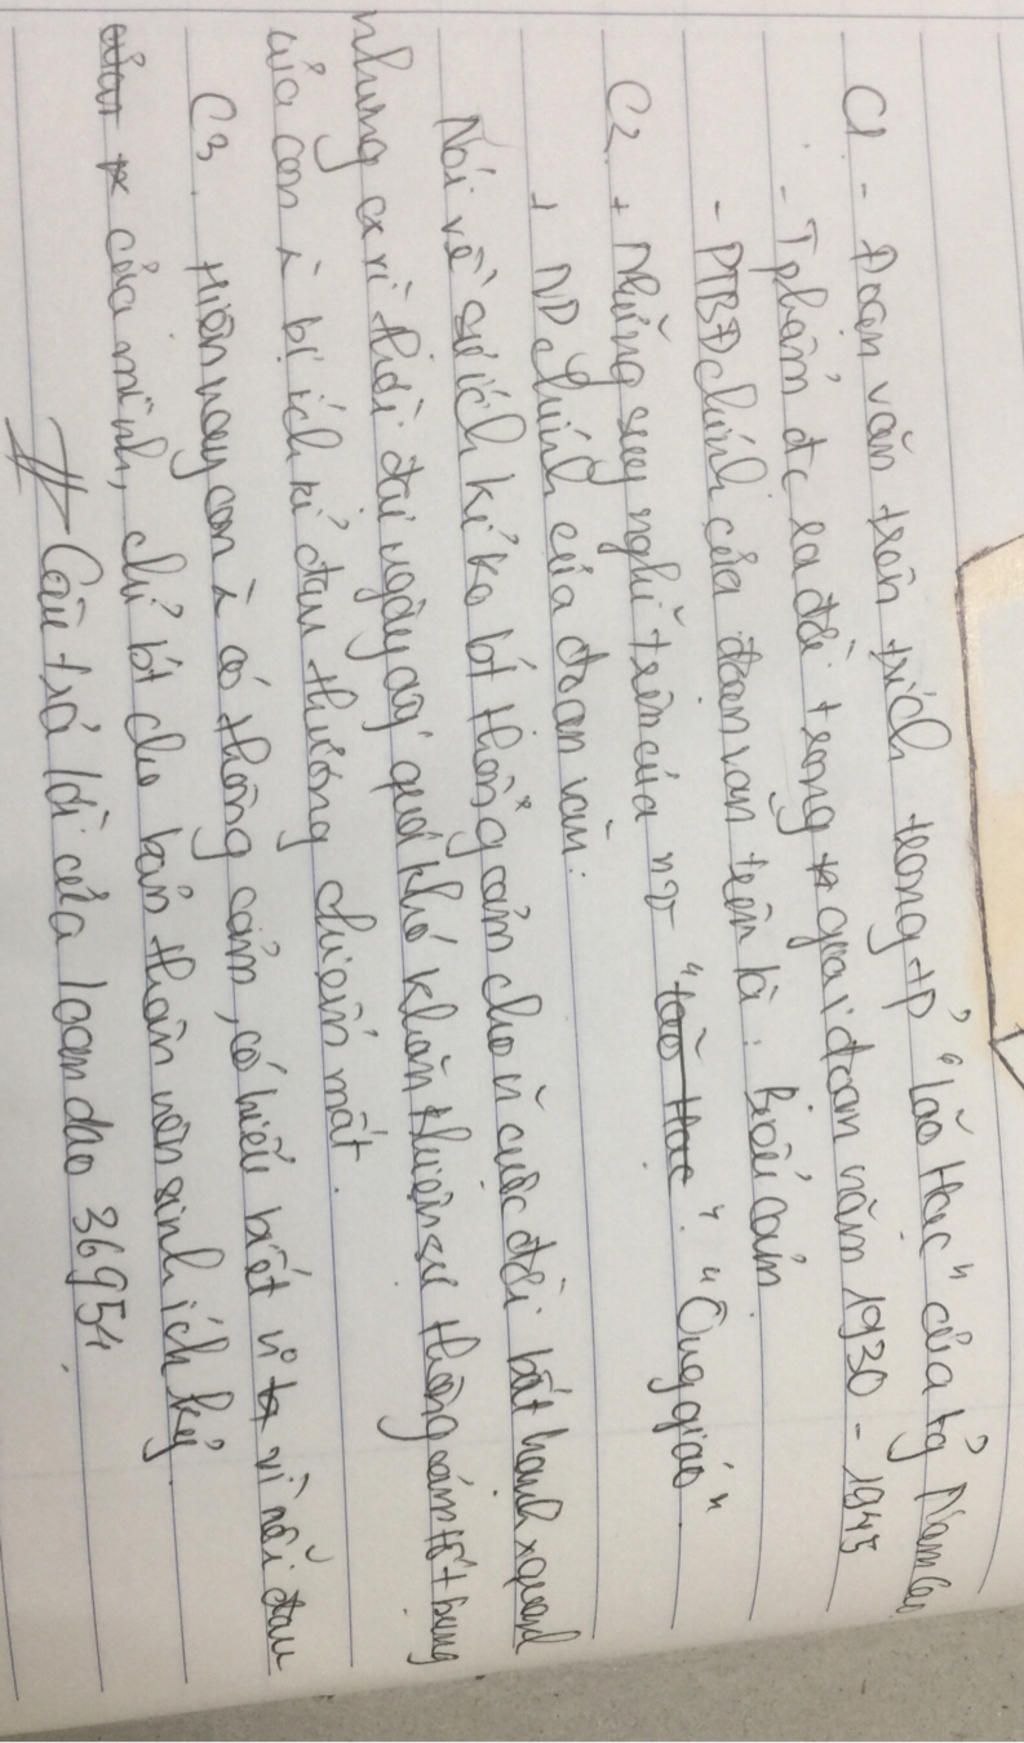 C1 - Đoạn văn trên trích trong tp' "Lão Hạc" của tg' Nam Cao
- Tphẩm đc ra đời trong gia i đoạn năm 1930 - 1945
- PTBĐ chính của đoạn văn trên là : Biểu cảm
C2. + Những suy nghĩ trên của nv "Ông giáo".
+ ND chính của đoạn văn:
Nói về sự ích kỉ ko bt thông cảm cho n~ cuộc đời bất hạnh x quanh
nhưng ở thời đại ngày ấy quá khó khăn khiến sự thông cảm tốt bụng
của con ng` bị ích kỉ đau thương chiếm mất.
C3. Hiện nay con ng` có thông cảm, có hiểu biết vì nỗi đau
của mình, chỉ bt cho bản thân nên sinh ích kỷ.
Câu trả lời của loandao 36954.